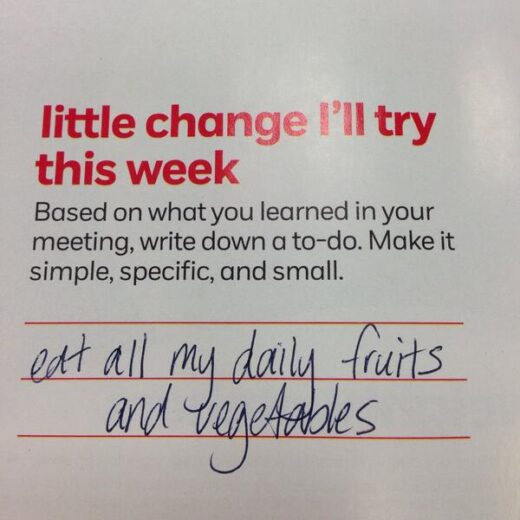 little change I'll try
this week
Based on what you learned in your
meeting, write down a to-do. Make it
simple, specific, and small.
eat all my daily fruits
and vegetables